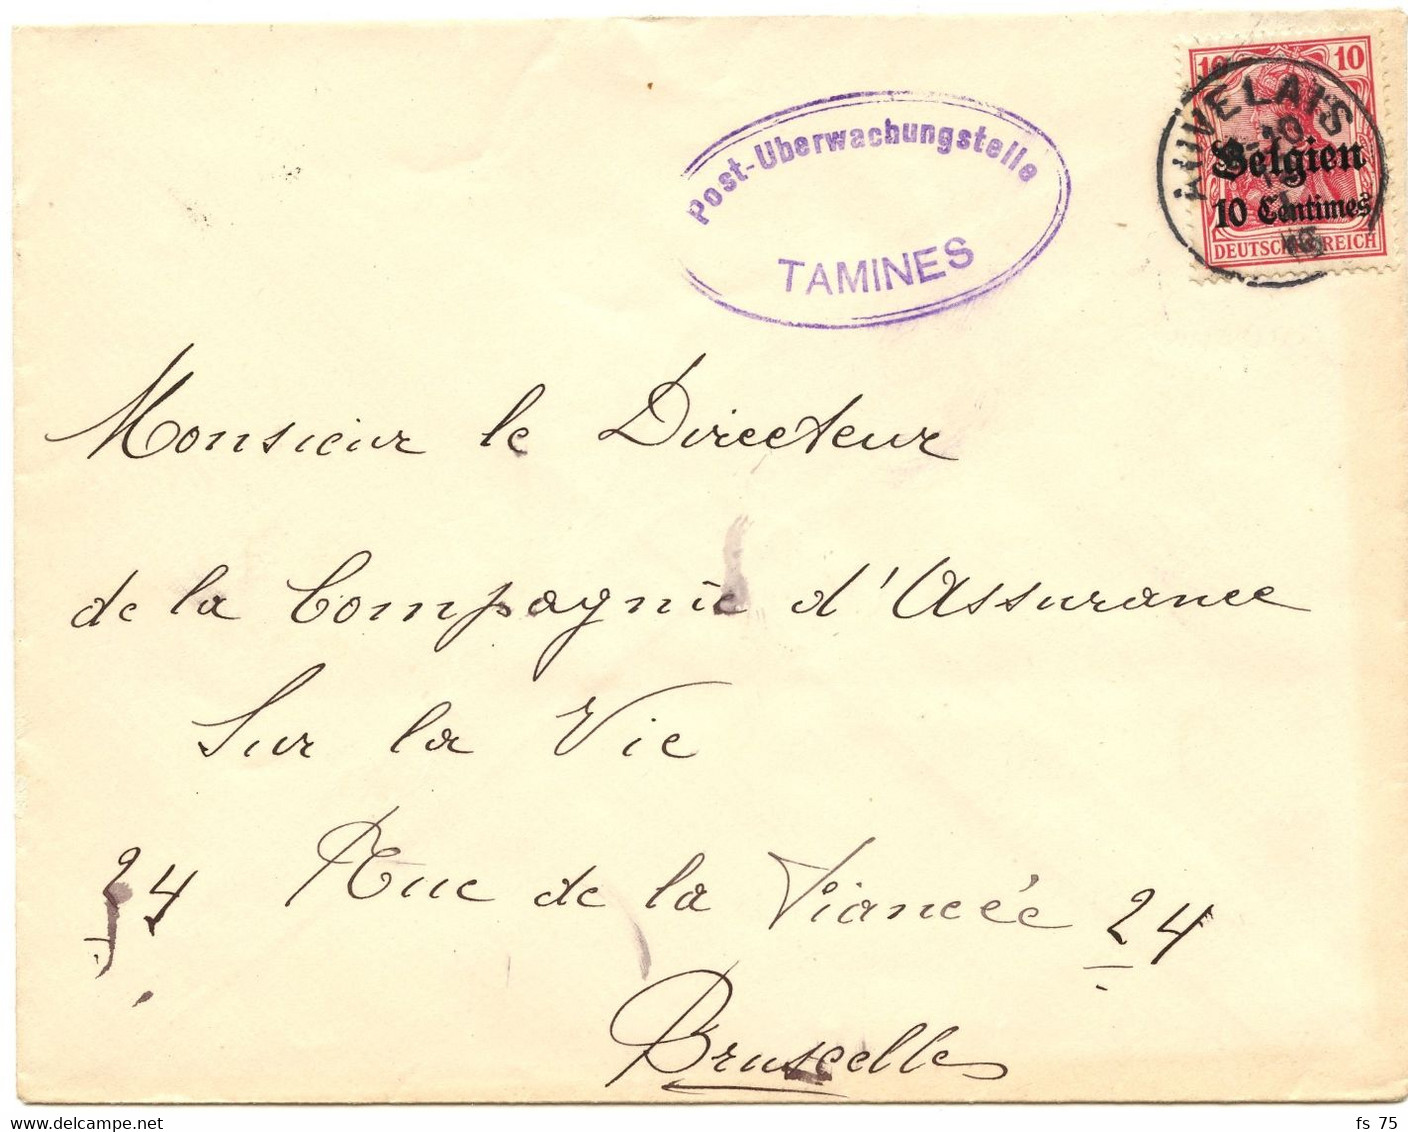 Post-Uberwachungstelle
TAMINES
10 10
AUVELAIS
Belgien
10 Centimes
DEUTSCHES REICH
Monsieur le Directeur
de la Compagnie d'Assurance
Sur la Vie
24 Rue de la Fiancée 24
Bruxelles
Delcampe.net
fs_75